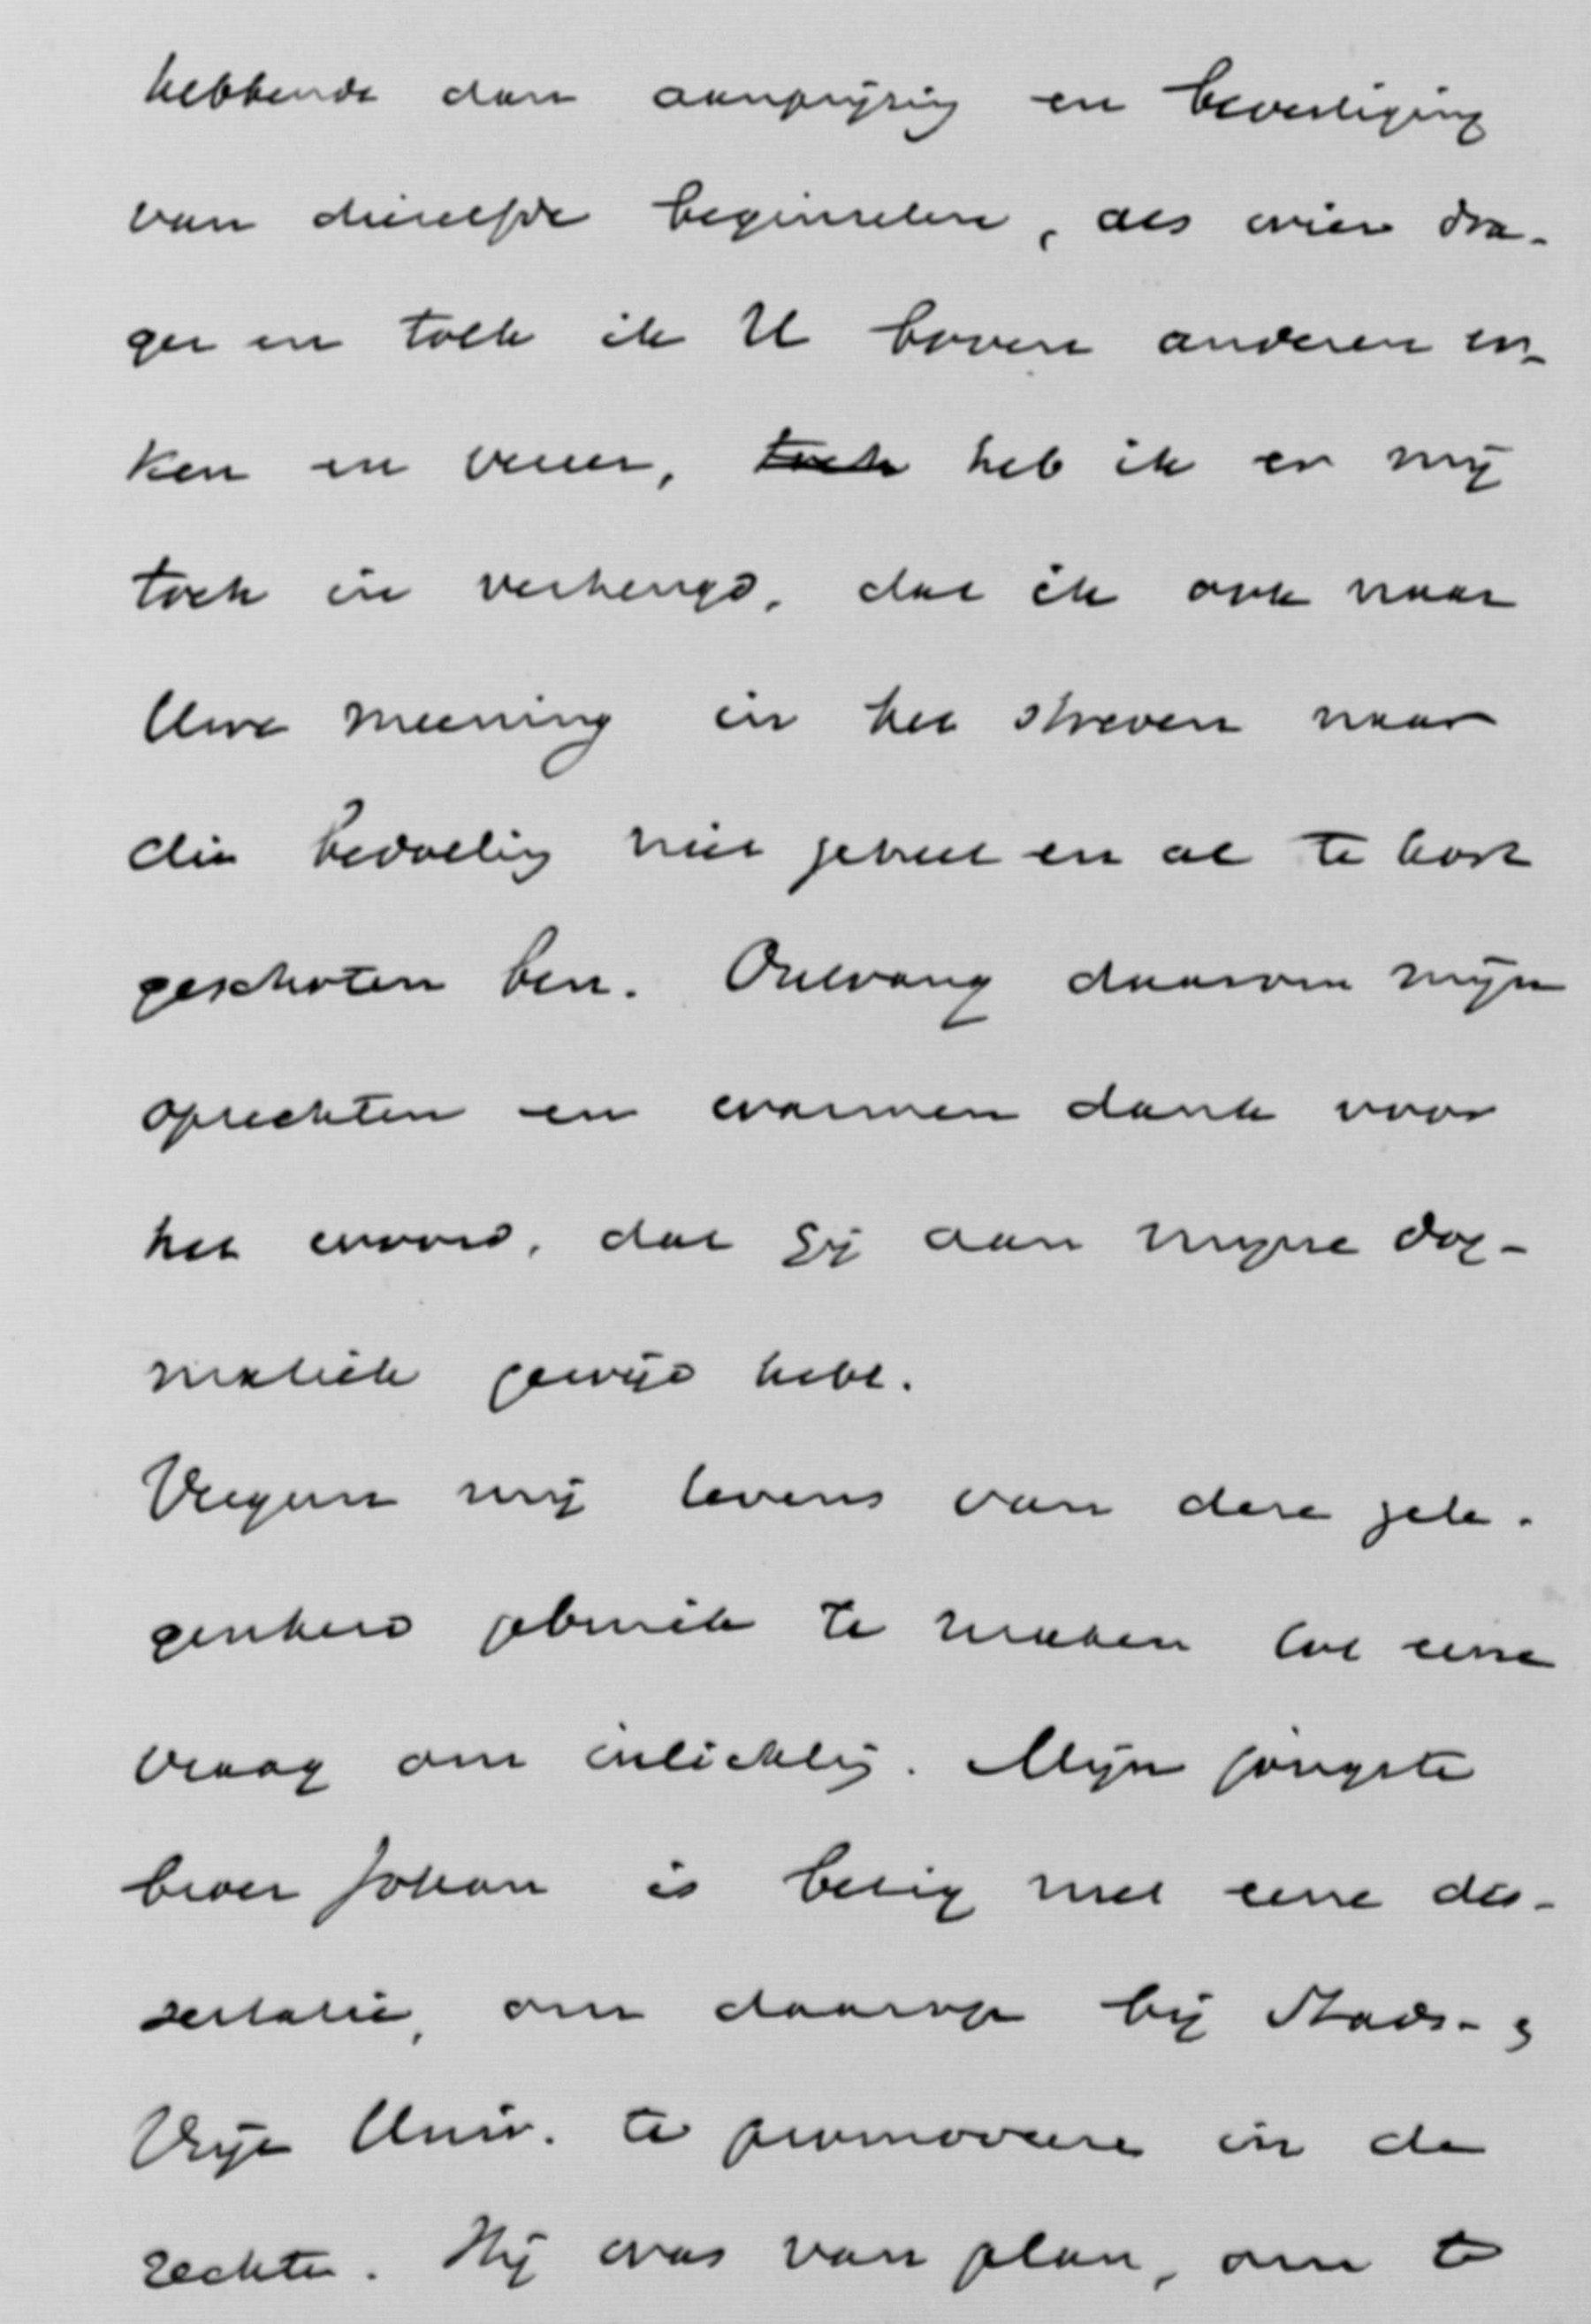 hebbende dan aanprijzing en bevestiging
van diezelfde beginselen, als wier dra-
ger en tolk ik U boven anderen en
ken en vereer, toch heb ik er mij
toch in verheugd, dat ik ook naar
Uwe meening in het streven naar
die bedoeling niet geheel en al te kort
geschoten ben. Ontvang daarom mijn
oprechten en warmen dank voor
het woord, dat gij aan mijne dog-
matiek gewijd hebt.
Vergun mij tevens van deze gele-
genheid gebruik te maken tot eene
vraag om inlichting. Mijn jongste
broer Johan is bezig met eene dis-
sertatie, om daarop bij Stads- &
Vrije Univ. te promoveeren in de
rechten. Hij was van plan, om te